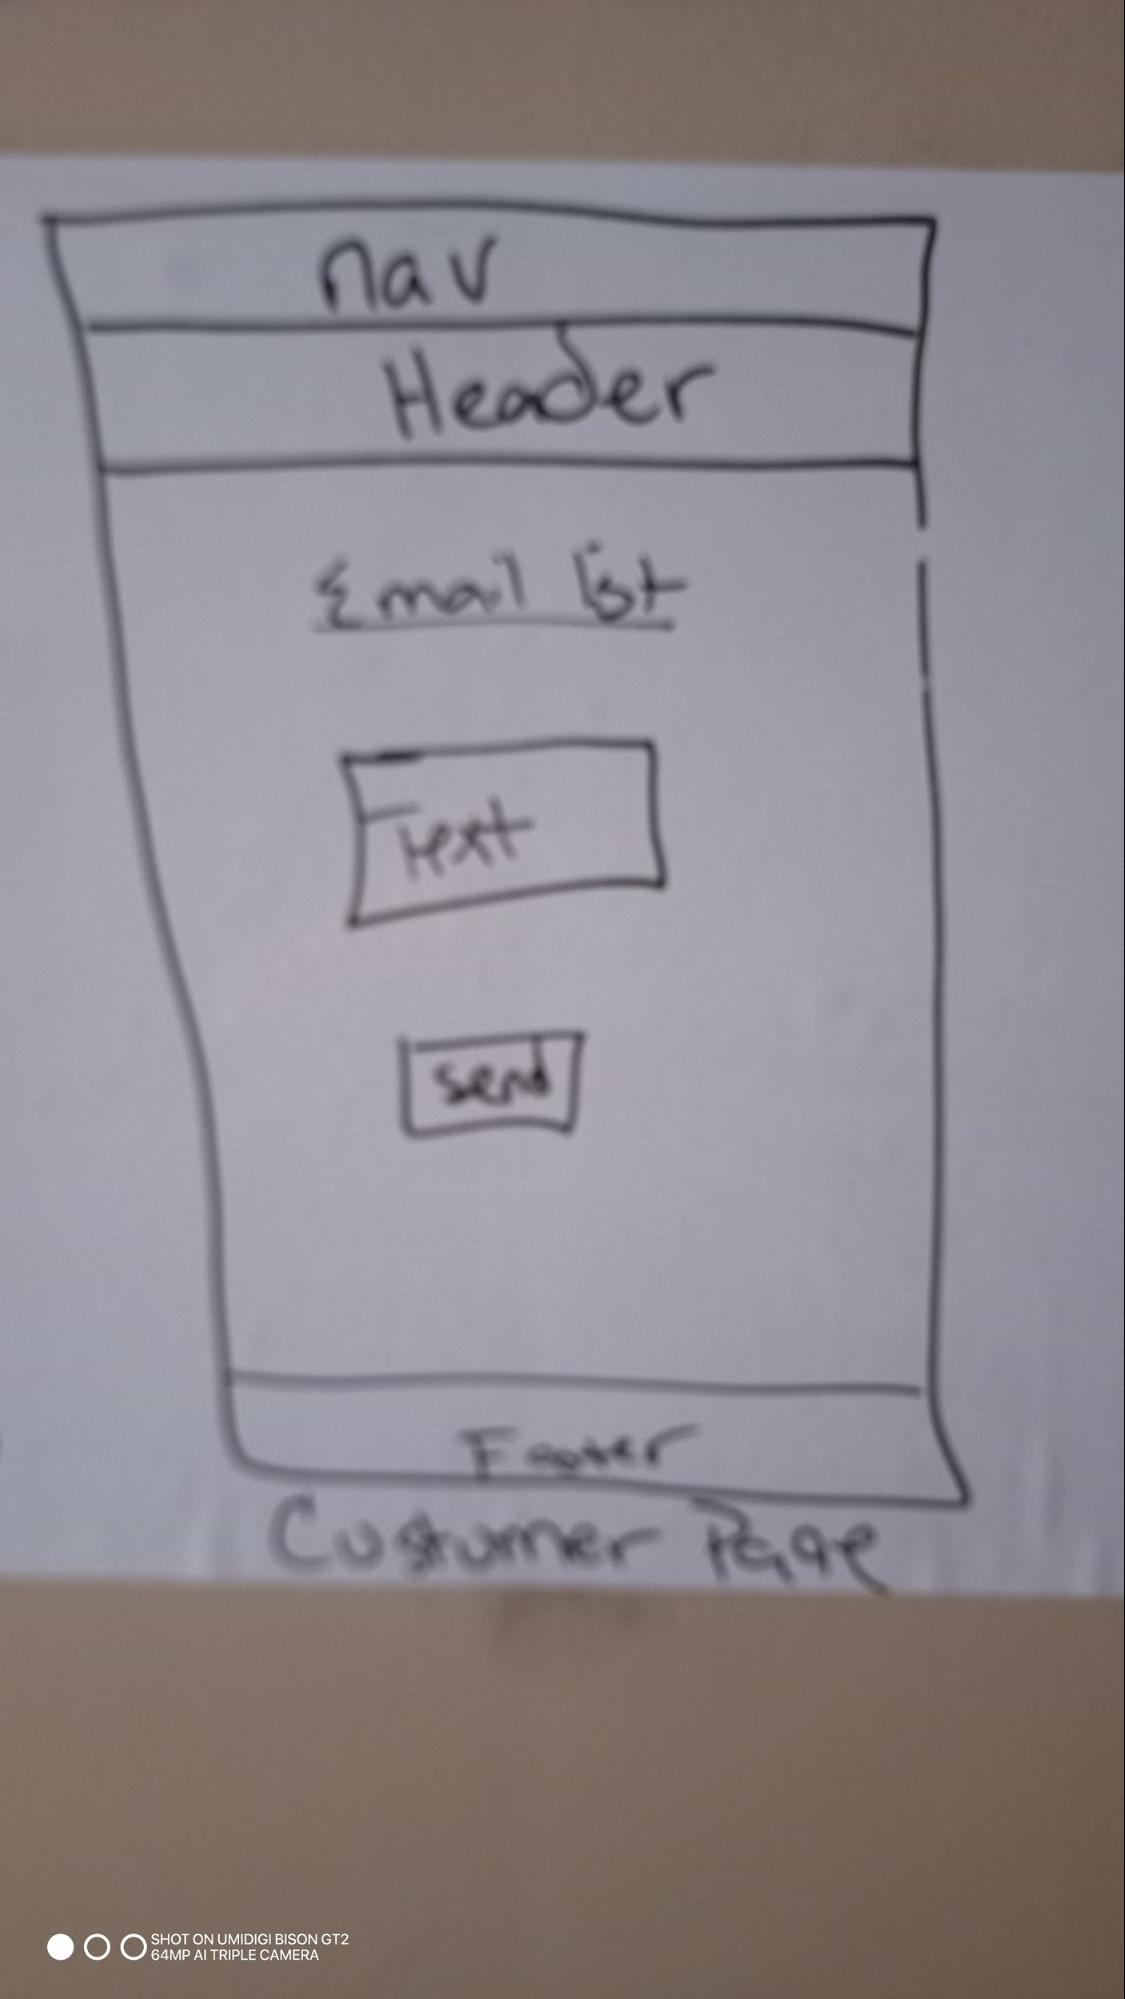 nav
Header
Email list
Text
send
Footer
Custumer Page
SHOT ON UMIDIGI BISON GT2
64MP AI TRIPLE CAMERA